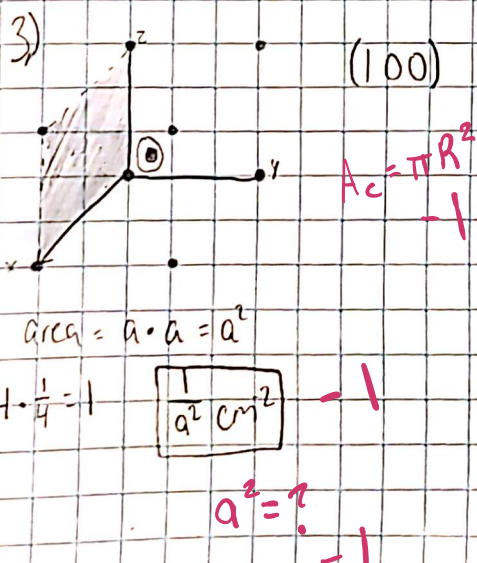 3)
z
(100)
y
A_c = πR²
-1
x
area = a·a = a²
4·1/4 = 1
1/a² cm²
-1
a² = ?
-1